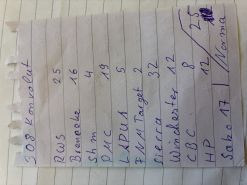 308 Konvolut
RWS 25
Brenneke 16
Shm 4
PMC 19
LAPUA 5
FNM Target 2
Sierra 32
Winchester 12
CBC 8
HP 12 / 25
Sako 17 / Norma